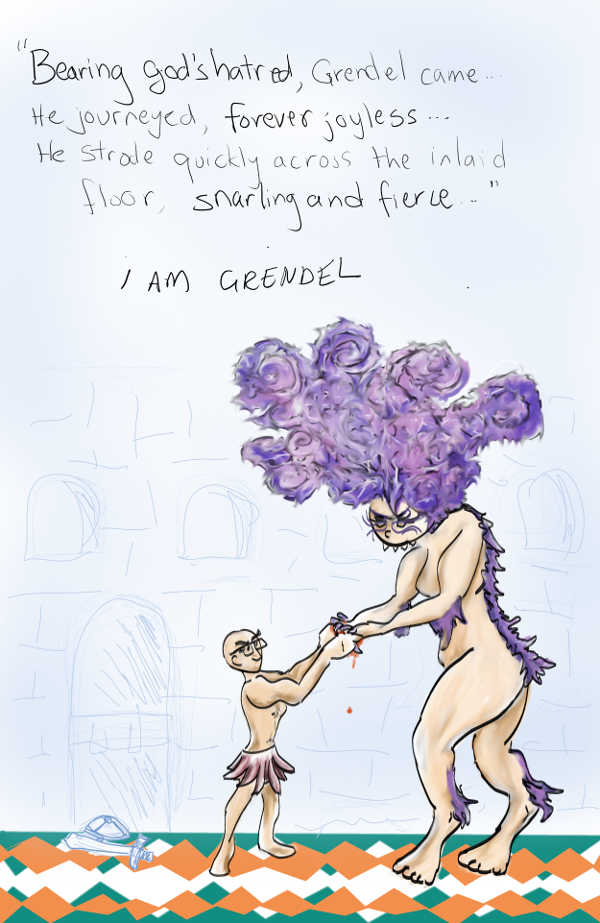 "Bearing god's hatred, Grendel came...
He journeyed, forever joyless...
He strode quickly across the inlaid
floor, snarling and fierce..."
I AM GRENDEL